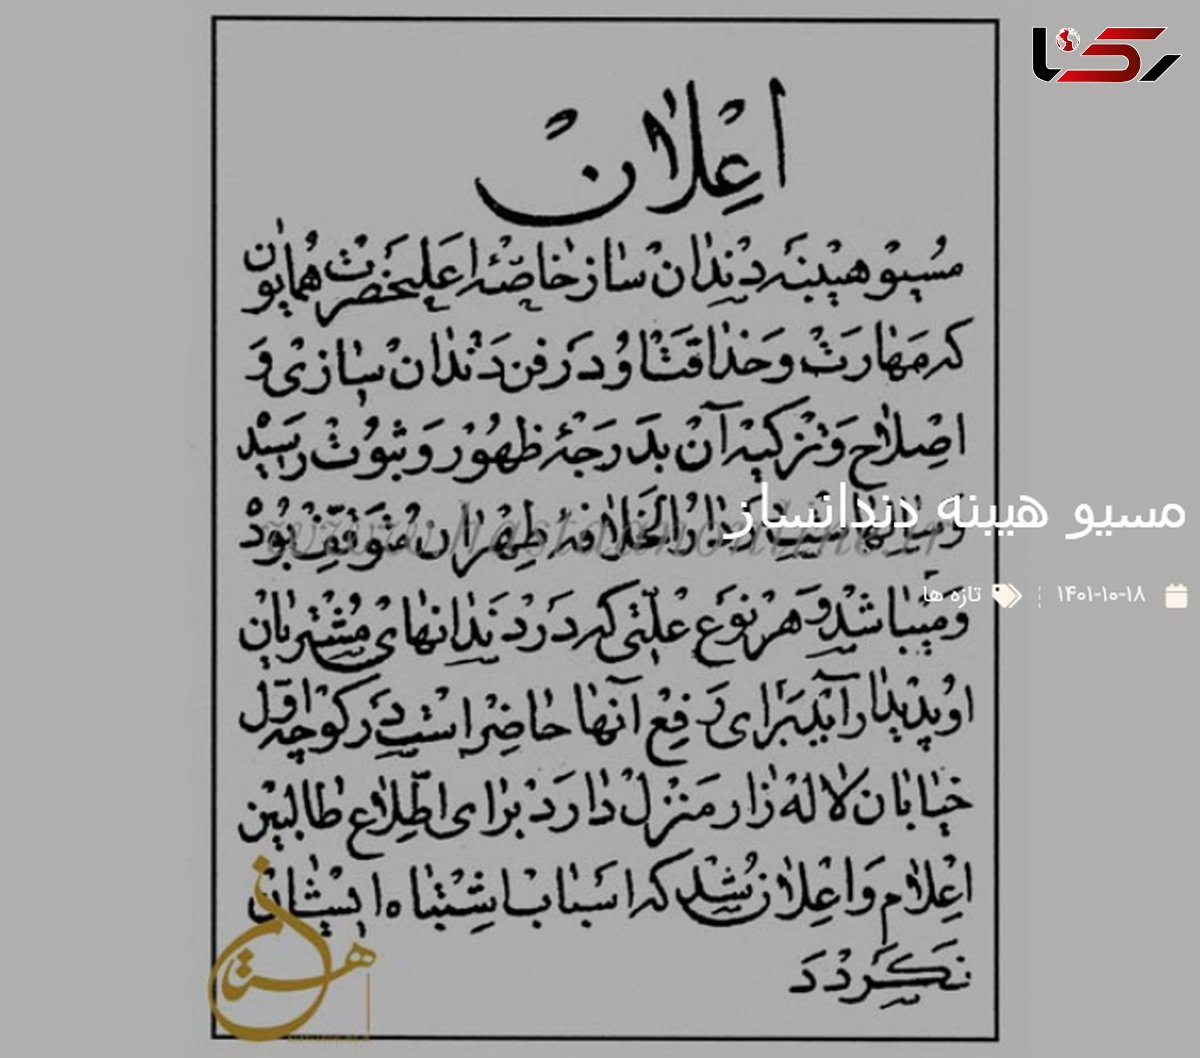 رکنا
اعلان
مسیو هیبنه دندان ساز خاصّهٔ اعلیحضرت همایون
که مهارت و حذاقت او در فن دندان سازی و
اصلاح و تزکیه آن بدرجهٔ ظهور و ثبوت رسید
و سالهاست در دارالخلافهٔ طهران متوقّف بود
مسیو هیبنه دندانساز
۱۴۰۱-۱۰-۱۸
تازه ها
و میباشد و هر نوع علّتی که در دندانهای مشتریان
او پدیدار آید برای رفع آنها حاضر است در کوچه اوّل
خیابان لاله زار منزل دارد برای اطّلاع طالبین
اعلام و اعلان شد که اسباب اشتباه ایشان
نگردد
هستان